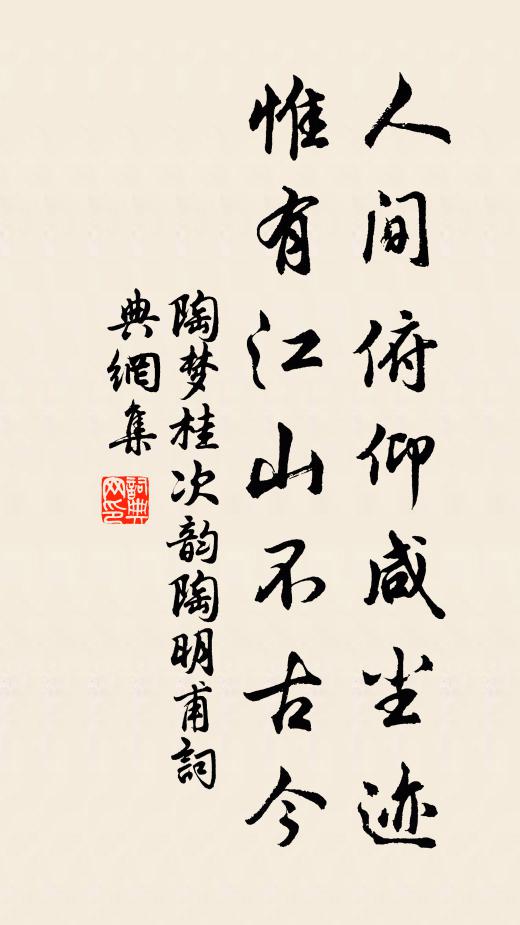 人间俯仰咸尘迹
惟有江山不古今
陶梦桂次韵陶明甫詞
典網集
詞典网印